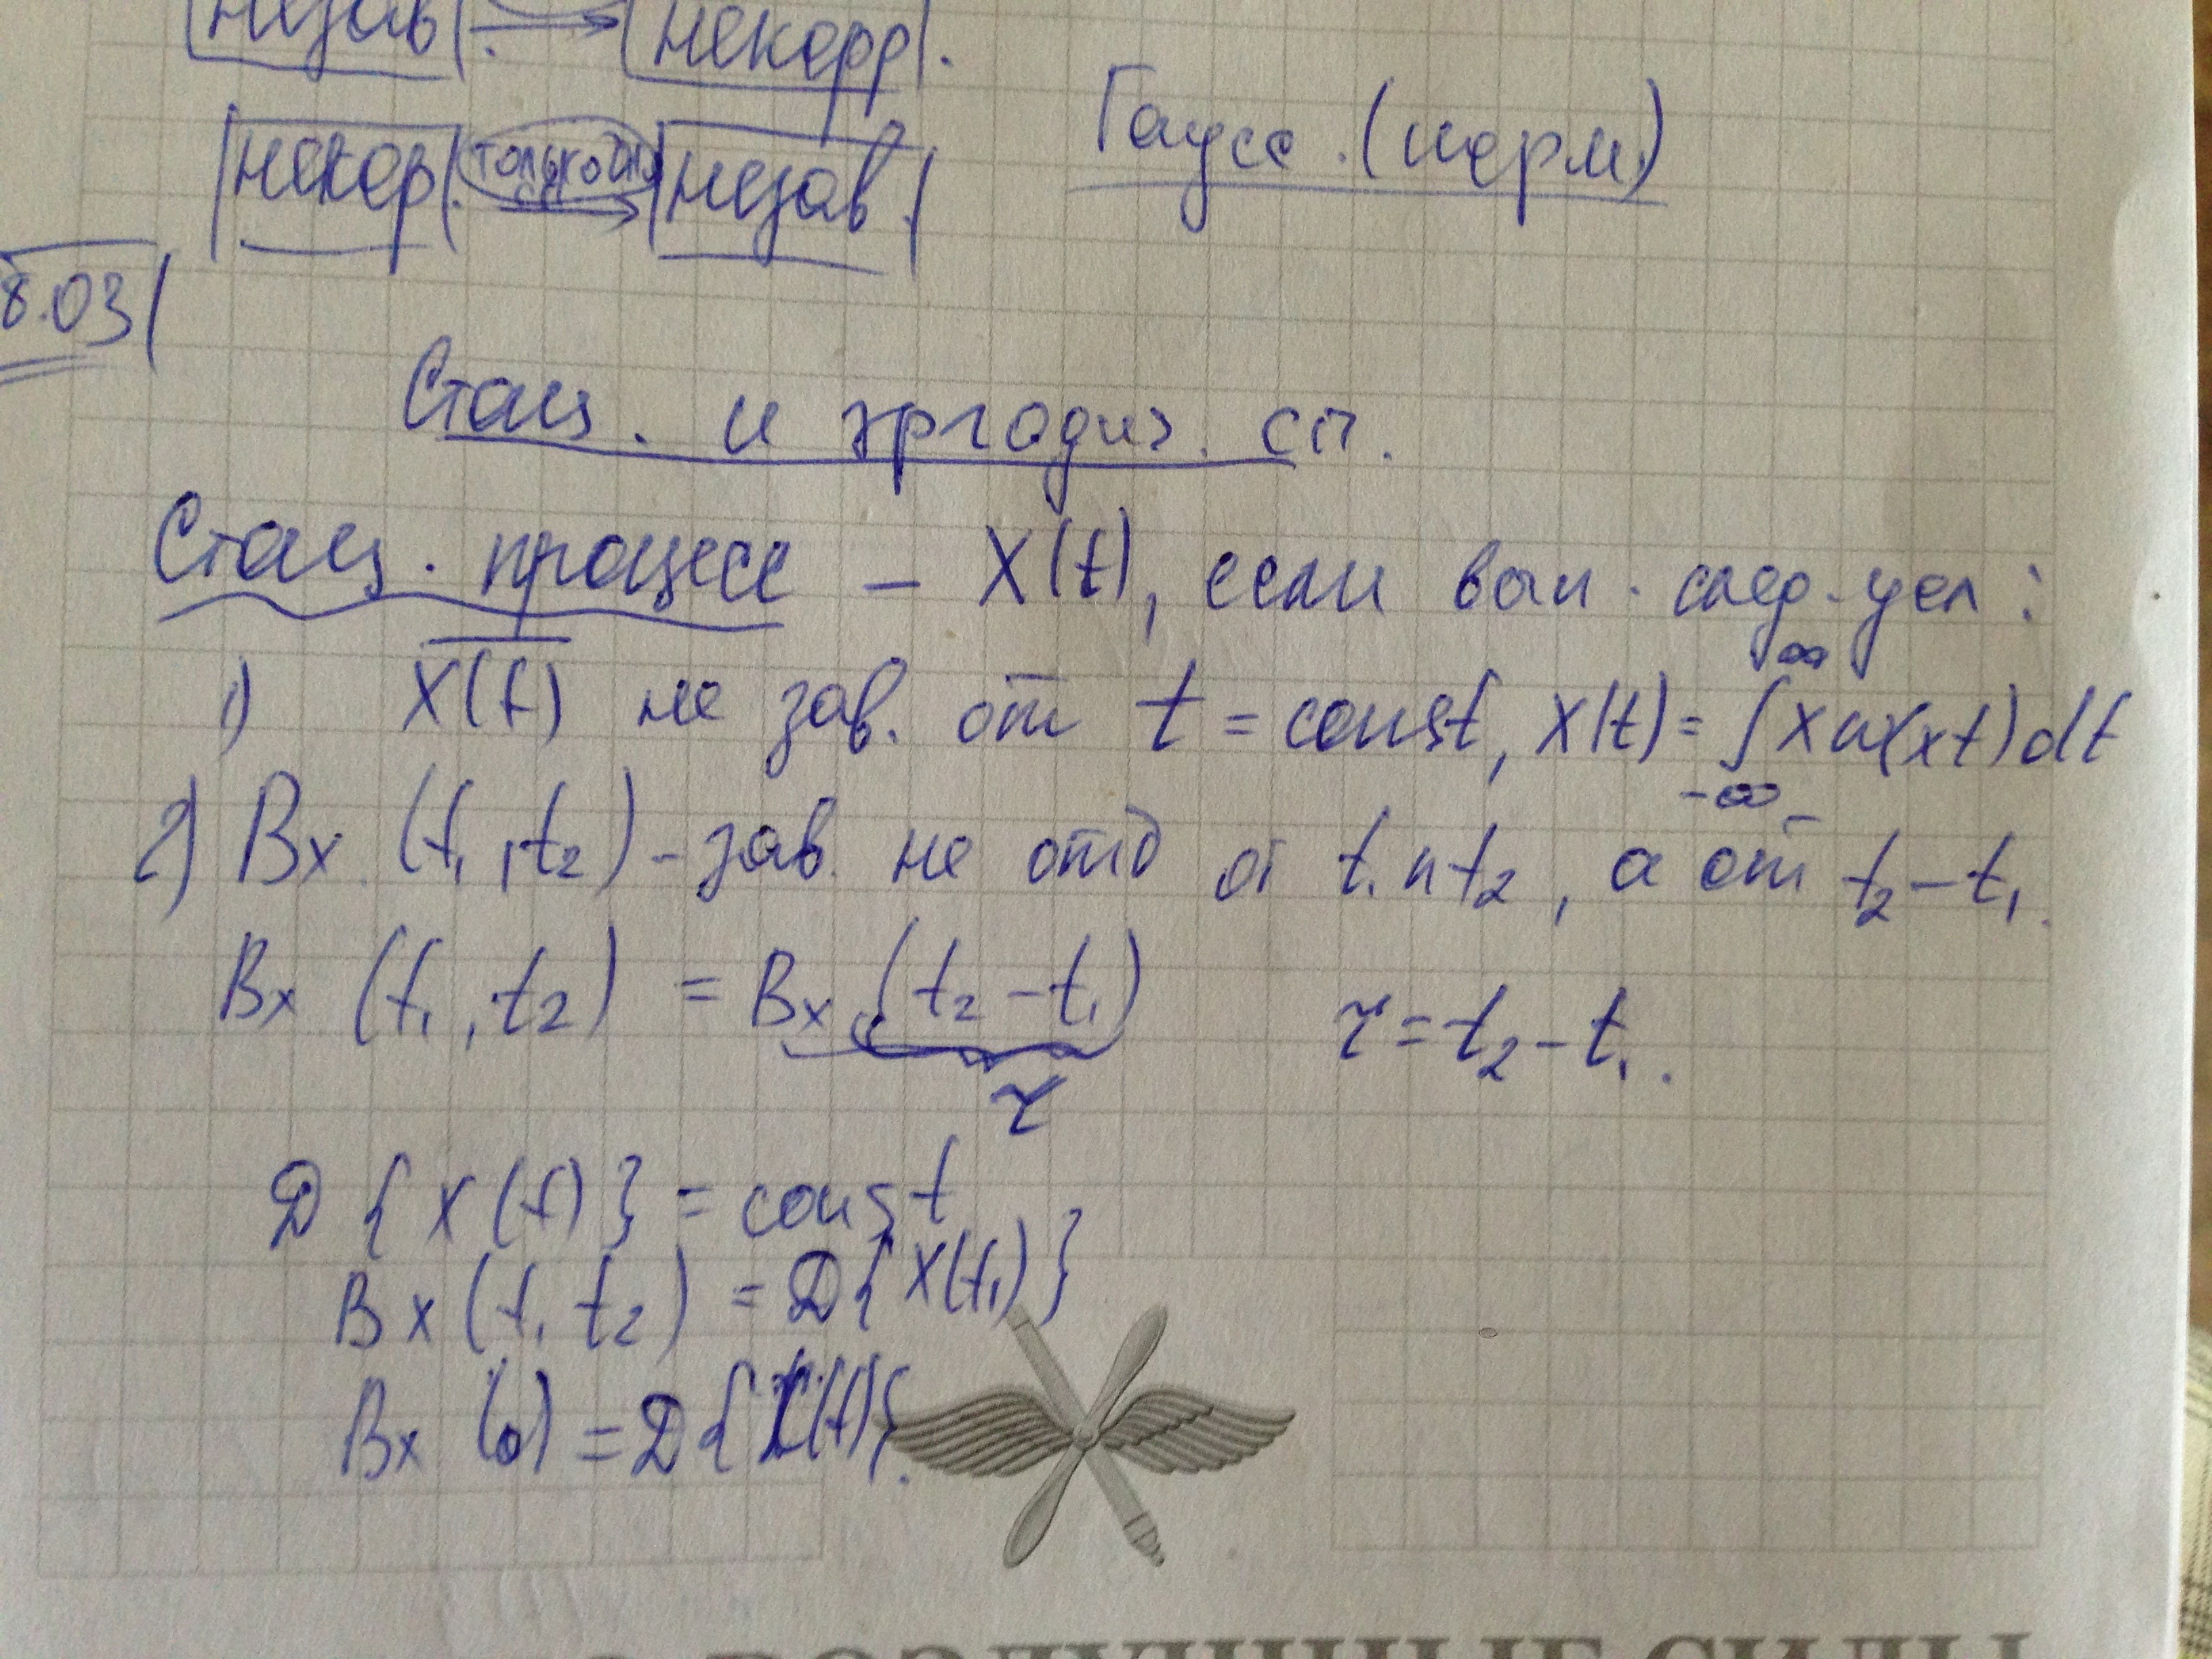 незав. → некорр.
Гаусс. (норм)
некор. только для → незав.
8.03
Стац. и эргодич. сп.
Стац. процесс – X(t), если вып. след. усл:
1) X(t) не зав. от t = const, X(t) = ∫ x w(xt)dt
∞
-∞
2) Bx (t₁, t₂) - зав. не отд от t₁ и t₂, а от t₂ – t₁.
Bx (t₁, t₂) = Bx (t₂ – t₁) τ = t₂ – t₁.
τ
D { x(t) } = const
Bx (t₁ t₂) = D{ X(t₁) }
Bx (0) = D{X(t)}.
ВОЗДУШНЫЕ СИЛЫ